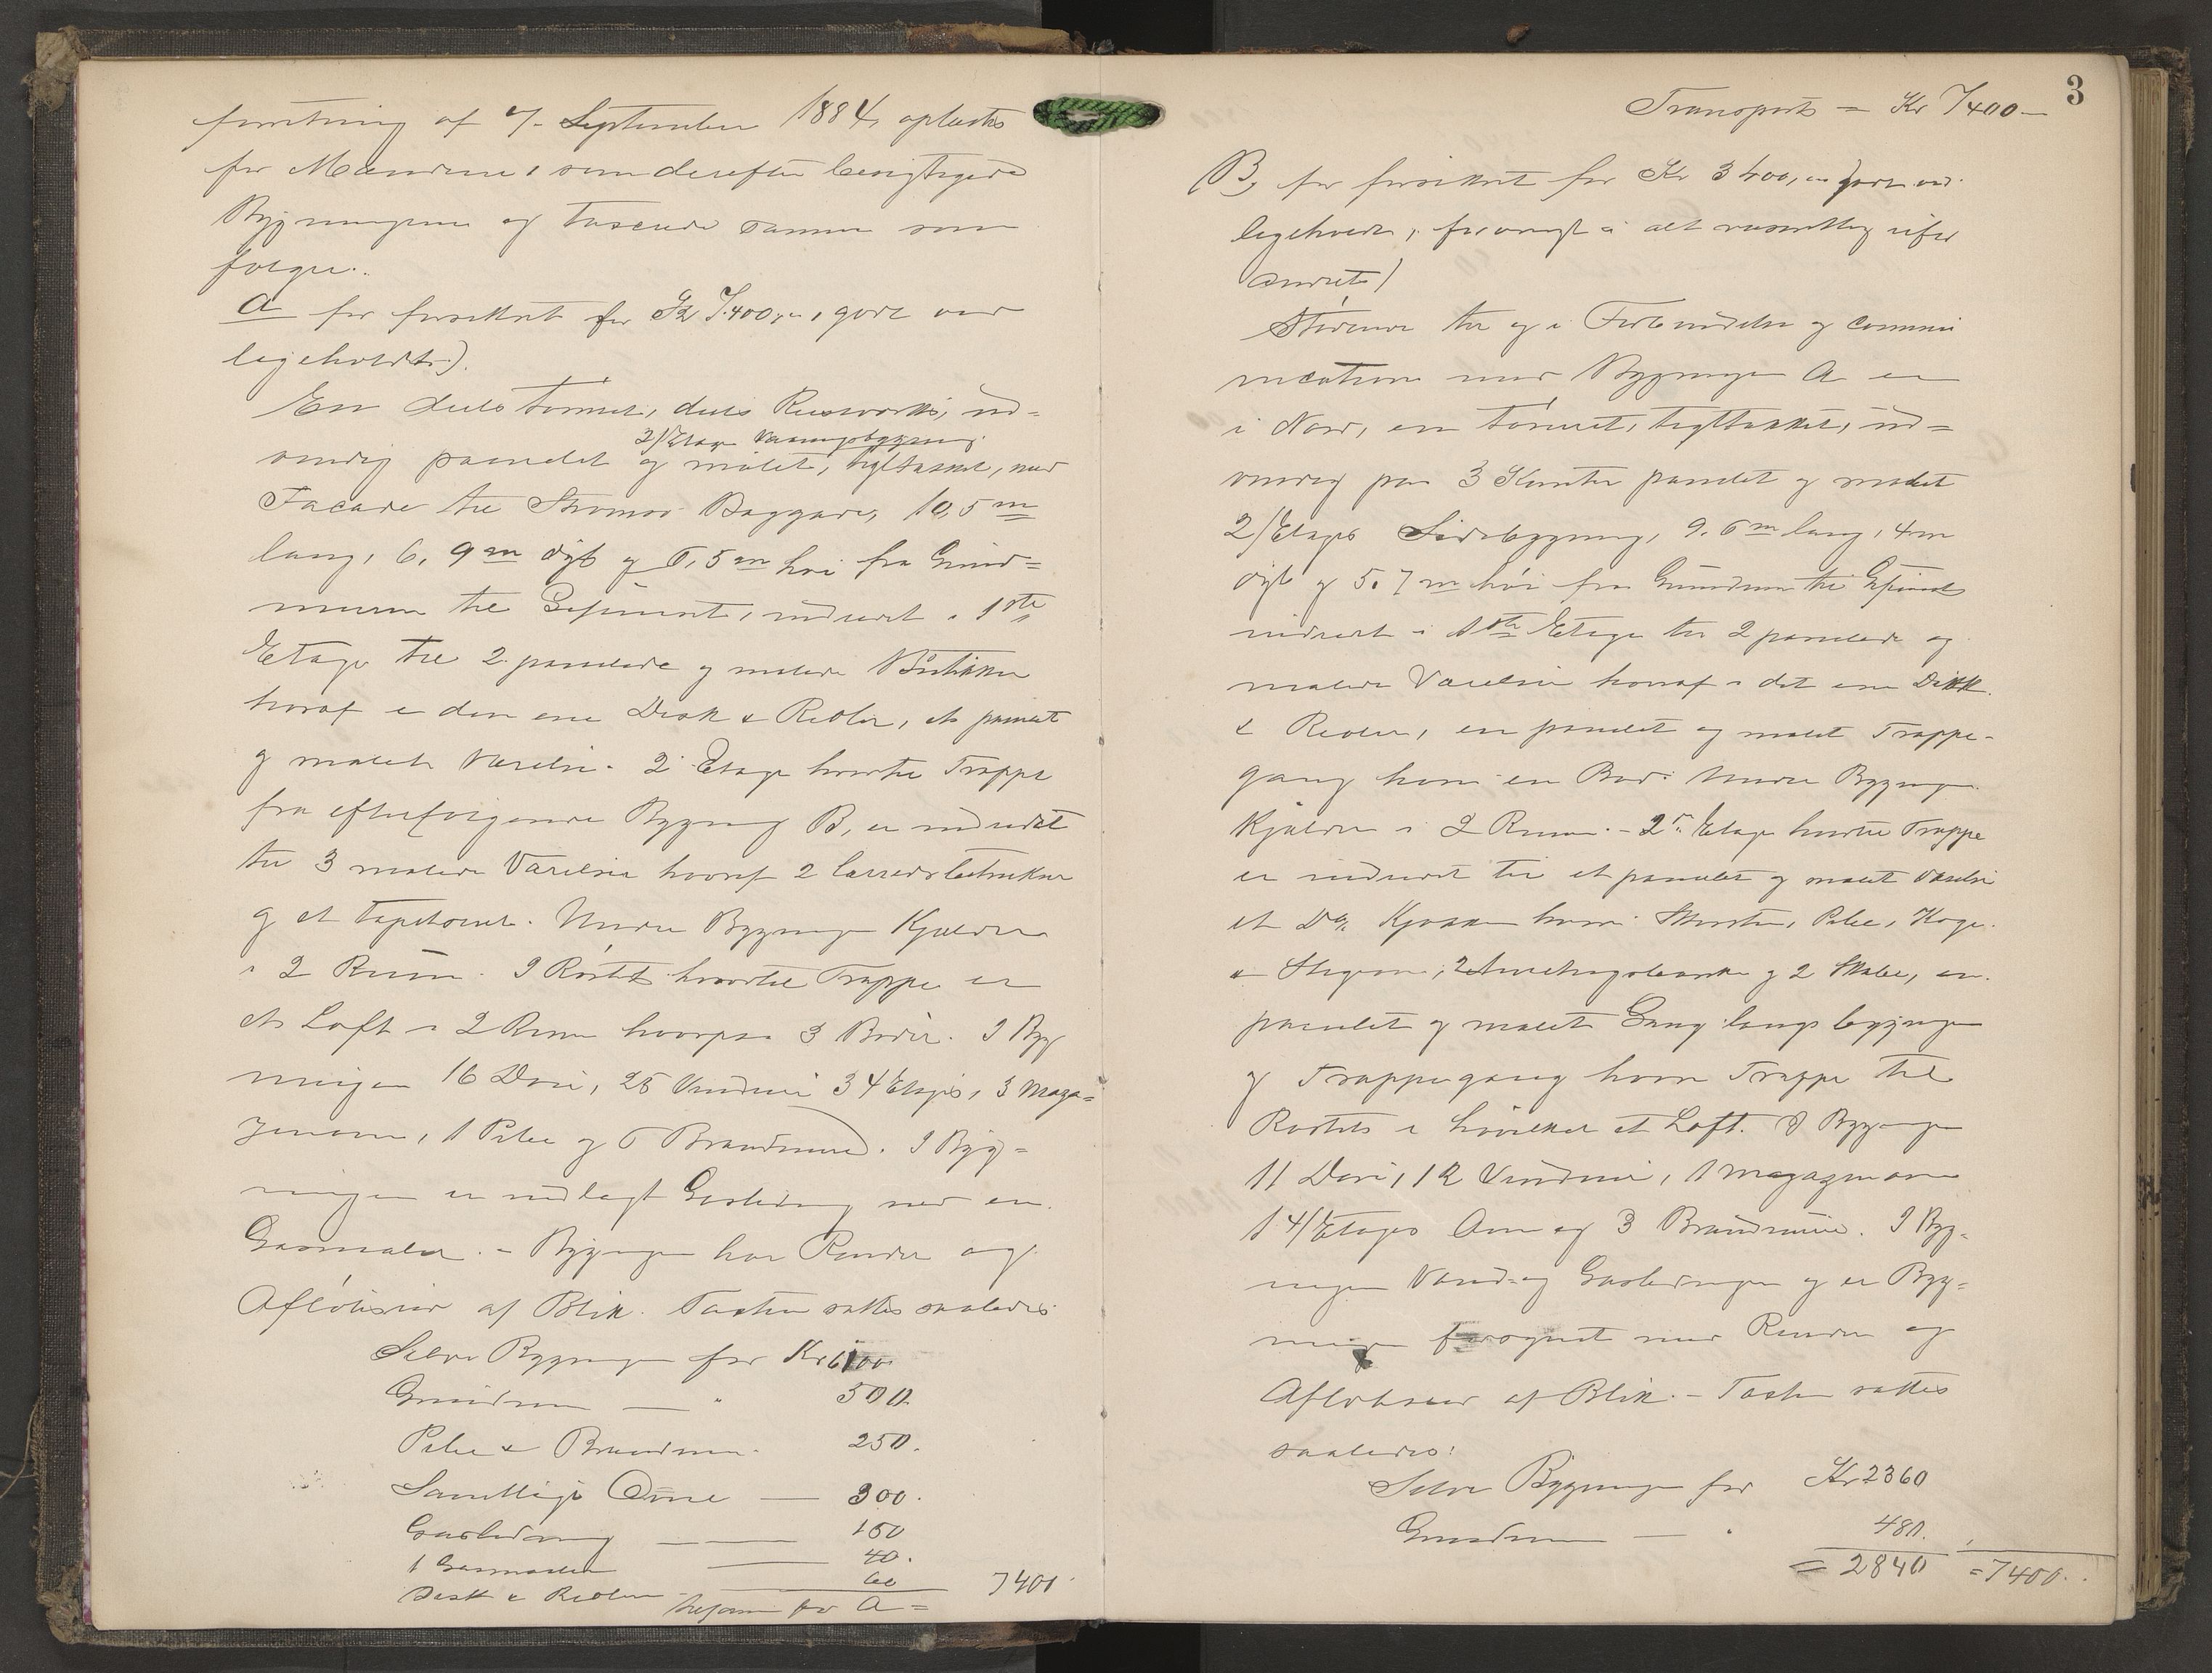 forretning af 7. September 1884, oplæstes
for Mændene, som derefter besigtigede
Bygningerne og taxerede samme som
følger:
A før forsikret for Kr 7400,-, godt ved
ligeholdt).
En dels tømret, dels Reisværks, ud=
2/Etages Vaaningsbygning
vendig panelet og malet, tegltækket, med
Facade til Strømøs Baggade, 10,5 m
lang, 6,9 m dyb og 6,5 m høi fra Grund=
muren til Gesimset, indredet i 1ste
Etage til 2 panelede og malede Butikker
hvoraf i den ene Disk & Reoler, et panelet
og malet Værelse. 2 Etage hvortil Trappe
fra efterfølgende Bygning B, er indredet
til 3 malede Værelser hvoraf 2 lærredsbetrukne
og et tapetseret. Under Bygningen Kjælder
i 2 Rum. I Røstet hvortil Trappe er
et Loft i 2 Rum hvorpaa 3 Boder. I Byg
ningen 16 Døre, 25 Vinduer 3 4 Etages, 3 Maga=
zinovne, 1 Pibe og 6 Brandmure. I Byg=
ningen er indlagt Gasledning med en
Gasmaaler. - Bygningen har Render og
Afløbsrør af Blik. Taxten sattes saaledes
Selve Bygningen for Kr 6100
Grundmuren — " 500.
Pibe & Brandmure 250.
Samtlige Ovne — 300.
Gasledning — 150
1 Gasmaaler — 40.
Disk & Reoler — 60
tilsammen for A = 7400
3
Transport = Kr 7400 —
(B, før forsikret for Kr 3400,- godt ved
ligeholdt, forøvrigt i alt væsentlig ufor
andret)
Stødende til og i Forbindelse og commu
nication med Bygningen A er
i Nord, en tømret, tegltækket, ud=
vendig paa 3 Kanter panelet og malet
2/Etages Sidebygning, 9.6 m lang, 4 m
dyb og 5.7 m høi fra Grundmuren til Gesimset
indredet i 1ste Etage til 2 panelede og
malede Værelser hvoraf i det ene Disk
& Reoler, en panelet og malet Trappe-
gang hvori en Bod. Under Bygningen
Kjælder i 2 Rum. - 2den Etage hvortil Trappe
er indredet til et panelet og malet Værelse
et Do. Kjøkken hvori Skorsten, Pibe, Koge-
& Stegeovn, 2 Anretningsbænke og 2 Skabe, en
panelet og malet Gang langs bygningen
og Trappegang hvori Trappe til
Røstet i hvilket et Loft. I Bygningen
11 Døre, 12 Vinduer, 1 Magazinovn
1 4/Etages Ovn og 3 Brandmure. I Byg-
ningen Vand- og Gasledninger og er Byg=
ningen forsynet med Render og
Afløbsrør af Blik. - Taxten sattes
saaledes:
Selve Bygningen for Kr 2360
Grundmuren — " 480.
= 2840 = 7400.